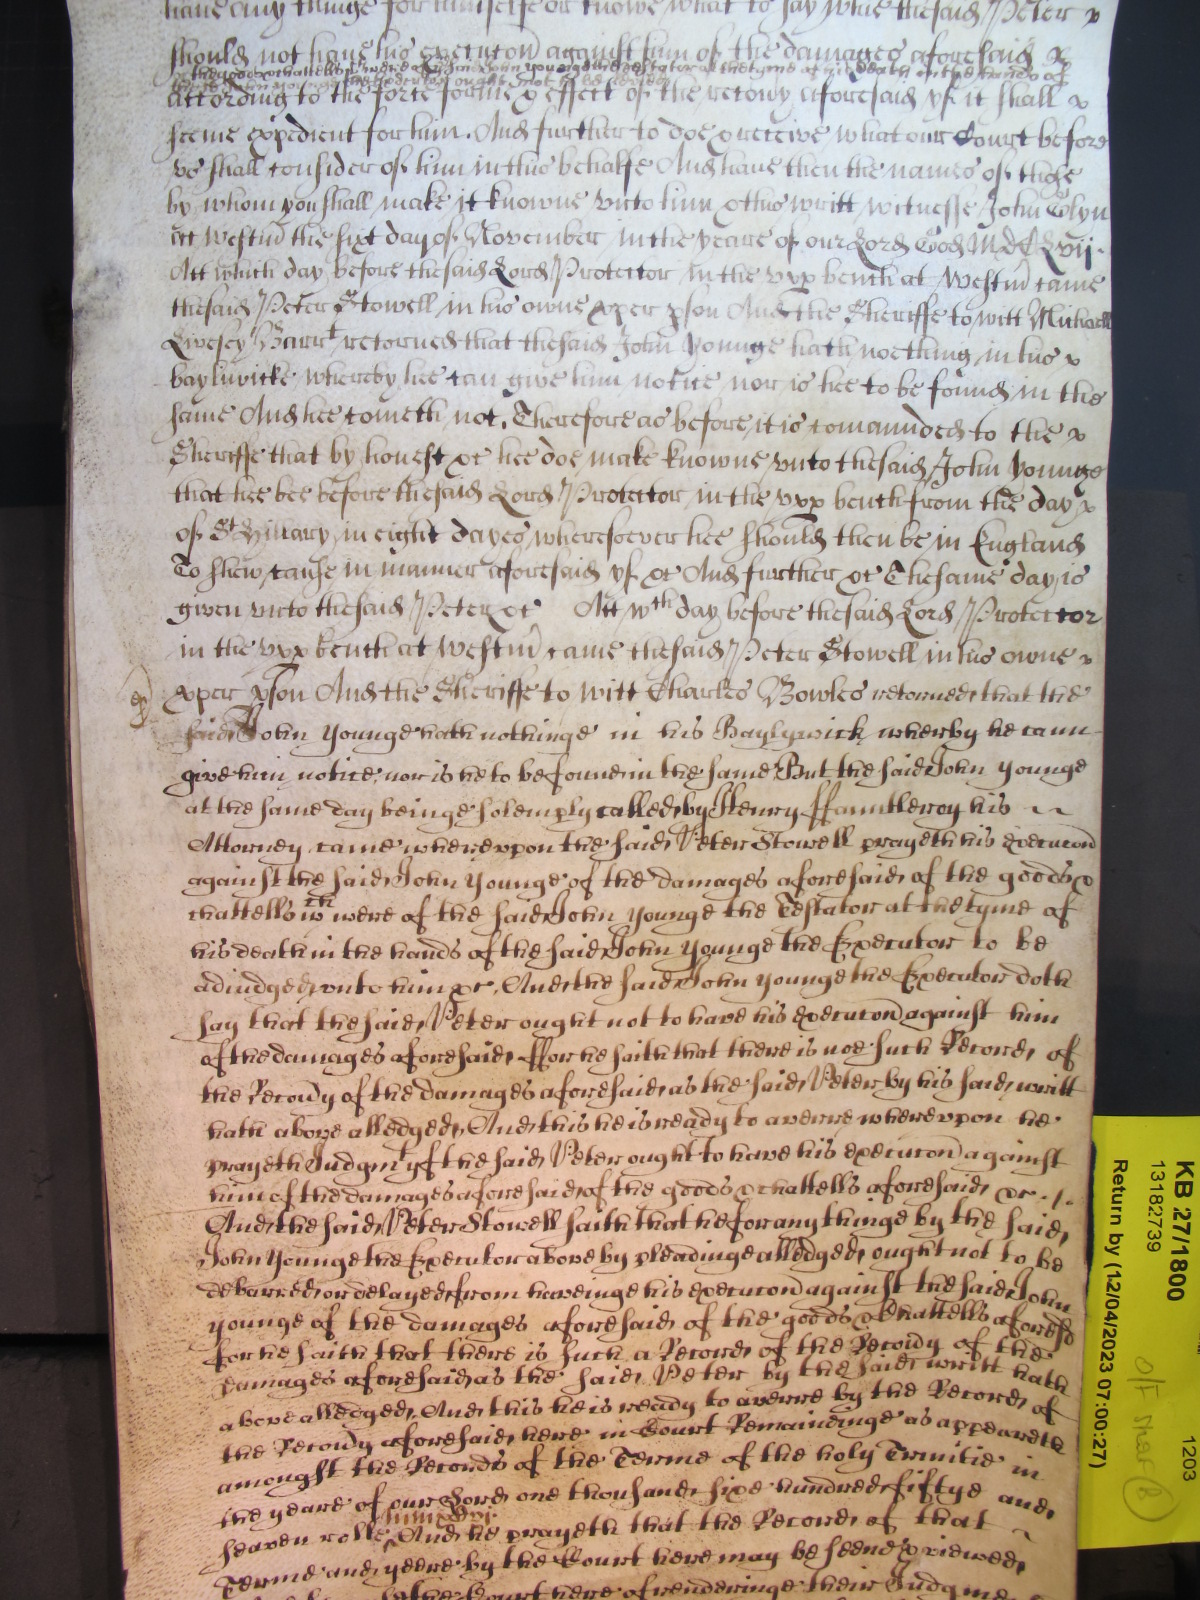 have any thinge for himselfe or knowe what to say why thesaid Peter
should not have his execucon against him of the damages aforesaid
of the goods & chattells which were of the said John Younge the testator at the tyme of his death in the hands of
according to the force forme & effect of the recovy aforesaid yf it shall
seeme expedient for him. And further to doe & receive what our Court before
vs shall consider of him in this behalfe And have then the names of those
by whom you shall make it knowne vnto him & this writt witnesse John Glyn
att Westm the sixt day of November in the yeare of our Lord God MdCLvij.
Att which day before thesaid Lord Protector in the vpp bench at Westm came
thesaid Peter Stowell in his owne pper pson And the Sheriffe to witt Michaell
Livesey Barrt retorned that thesaid John Younge hath noething in his
baylywicke whereby hee can give him notice nor is hee to be found in the
same And hee cometh not. Therefore as before it is comaunded to the
Sheriffe that by honest &c hee doe make knowne vnto thesaid John Younge
that hee bee before thesaid Lord Protector in the vpp bench from the day
of St Hillary in eight dayes wheresoever hee should then be in England
To shew cause in manner aforesaid yf &c And further &c The same day is
given vnto thesaid Peter &c Att wch day before thesaid Lord Protector
in the vpp bench at Westm came thesaid Peter Stowell in his owne
pper pson And the Sheriffe to witt Charles Bowles retorned that the
said John Younge hath nothinge in his Baylywick wherby he cann
give him notice nor is he to be found in the same But the said John Younge
at the same day beinge solemply called by Henry ffauntleroy his
Attorney came wherevpon the said Peter Stowell prayeth his execucon
against the said John Younge of the damages aforesaid of the goods &
chattells wch were of the said John Younge the Testator at the tyme of
his death in the hands of the said John Younge the Executor to be
adiudged vnto him &c. And the said John Younge the Executor doth
say that the said Peter ought not to have his execucon against him
of the damages aforesaid ffor he saith that there is noe such Record of
the Recovy of the damages aforesaid as the said Peter by his said writt
hath above alledged And this he is ready to averre wherevpon he
prayeth Judgmt yf the said Peter ought to have his execucon against
him of the damages aforesaid of the goods & chattells aforesaid &c.
And the said Peter Stowell saith that he for any thinge by the said
John Younge the Executor above by pleadinge alledged ought not to be
debarred or delayed from haveinge his execucon against the said John
Younge of the damages aforesaid of the goods & Chattells aforesd
for he saith that there is such a Record of the Recovy of the
damages aforesaid as the said Peter by the said writt hath
above alledged And this he is ready to averre by the Record of
the Recovy aforesaid here in Court Remaininge as appeareth
amongst the Records of the Terme of the holy Trinitie in
the yeare of our Lord one thousand six hundred fiftye and
seaven rolle And he prayeth that the Record of that
Terme and yeere by the Court here may be seene & viewed
the Court here of renderinge their Judgme
KB 27/1800
13182739
Return by (12/04/2023 07:00:27)
1203